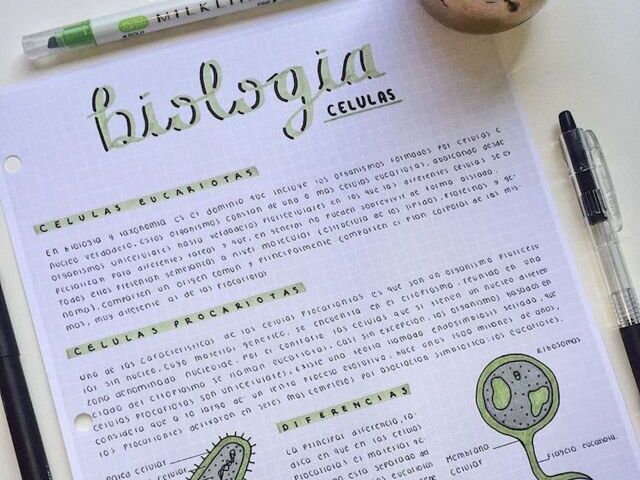 MILKLI
biología
CELULAS
CELULAS EUCARIOTAS
En biología y taxonomía es el dominio que incluye los organismos formados por células c
núcleo verdadero. Estos organismos constan de una o más células eucariotas, abarcando desde
organismos unicelulares hasta verdaderos pluricelulares en los que las diferentes células se es
pecializan para diferentes tareas y que, en general no pueden sobrevivir de forma aislada.
Todos ellos presentan semejanzas a nivel molecular (estructura de los lípidos, proteínas y ge
noma), comparten un origen común y principalmente comparten el plan corporal de las mis
mas, muy diferente al de las procariotas
CELULAS PROCARIOTAS
Una de las características de las células procariontas es que son un organismo pluricelu
lar sin núcleo, cuyo material genético se encuentra en el citoplasma, reunido en una
zona denominado nucleoide, por el contrario las células que si tienen un núcleo diferen
ciado del citoplasma se llaman eucariotas, casi sin excepción los organismos basados en
células procariotas son unicelulares, existe una teoría llamada endosimbiosis seriada, que
considera que a lo largo de un lento proceso evolutivo, hace unos 1500 millones de años,
los procariontes derivaron en seres más complejos por asociación simbiótica: los eucariontes.
DIFERENCIAS
La principal diferencia, ra-
dica en que en las células
procariotas el material ge-
Ribosomas
Membrana
celular
Flagelo eucariota.
celular
celular